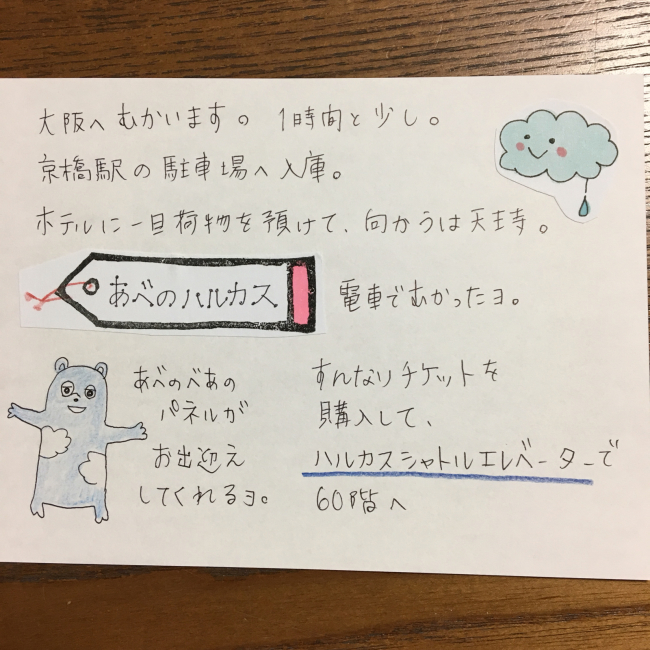 大阪へむかいます。 1時間と少し。
京橋駅の駐車場へ入庫。
ホテルに一旦荷物を預けて、向かうは天王寺。
あべのハルカス
電車でむかったヨ。
あべのべあの
パネルが
お出迎え
してくれるヨ。
すんなりチケットを
購入して、
ハルカスシャトルエレベーターで
60階へ